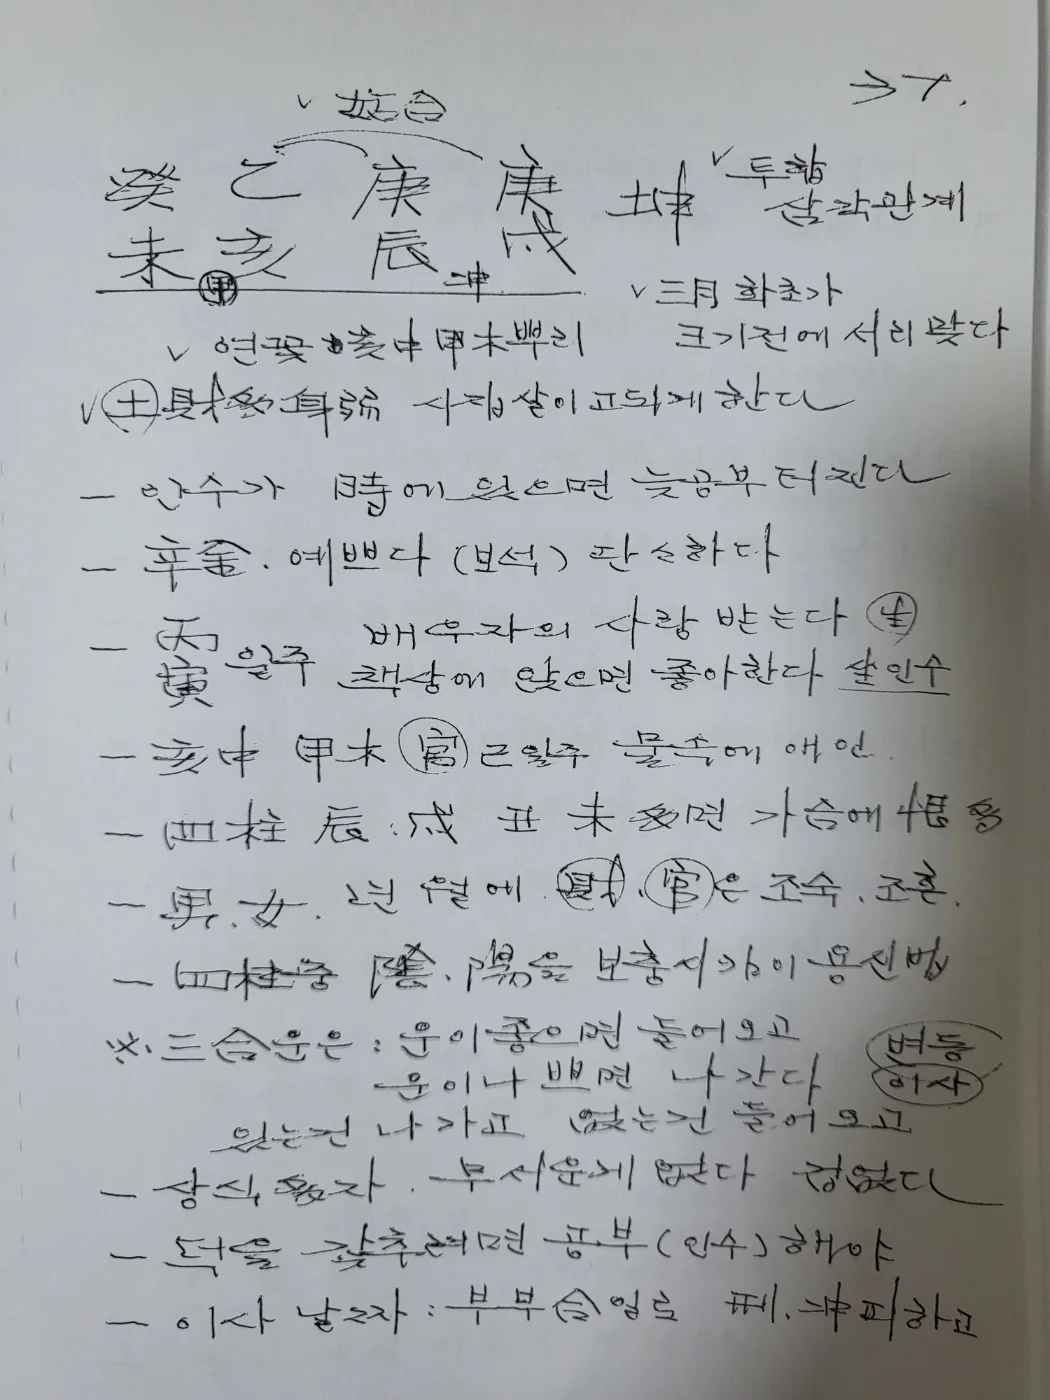 →7.
∨ 妬合
癸 乙 庚 庚 坤 ∨ 투합
未 亥 辰 戌 삼각관계
甲 冲 ∨ 三月 화초가
∨ 연꽃 亥中 甲木뿌리 크기전에 서리맞다
∨ 土 財多身弱 사잽살이 고되게한다
- 인수가 時에 있으면 늦공부 터진다
- 辛金. 예쁘다 (보석) 판소하다
- 丙寅 일주 배우자의 사랑 받는다
책상에 앉으면 좋아한다 살인수
- 亥中 甲木 官 근일주 물속에 애인.
- 四柱 辰.戌 丑 未 多면 가슴에 恨 多
- 男.女. 년 월에 財.官은 조숙.조혼.
- 四柱중 陰.陽을 보충시킴이 용신법
※.三合운은 : 운이좋으면 들어오고 변동
운이나쁘면 나간다 이사
있는건 나가고 없는건 들어오고
- 상식多자. 무서운게 없다 겁없다
- 덕을 갖추려면 공부(인수)해야
- 이사 날짜 : 부부合일로 피.冲피하고